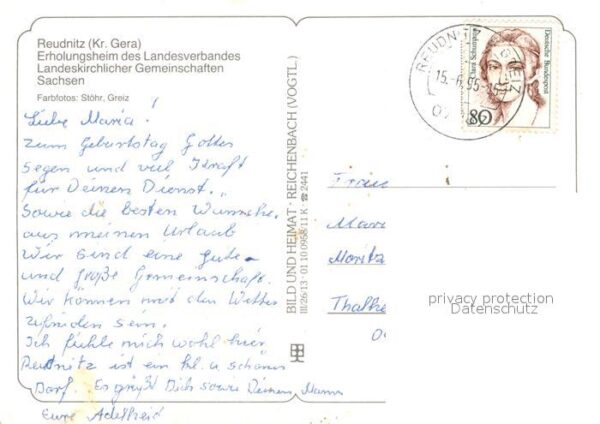 Reudnitz (Kr. Gera)
Erholungsheim des Landesverbandes
Landeskirchlicher Gemeinschaften
Sachsen
Farbfotos: Stöhr, Greiz
Liebe Maria!
zum Geburtstag Gottes
Segen und viel Kraft
für Deinen Dienst.
Sowie die besten Wünsche
aus meinen Urlaub
Wir sind eine gute
und große Gemeinschaft.
Wir können mit den Wetter
zufrieden sein.
Ich fühle mich wohl hier
Reudnitz ist ein kl. u schönes
Dorf. Es grüßt Dich sowie Deinen Mann
Eure Adelheid
BILD UND HEIMAT · REICHENBACH (VOGTL.)
III/26-13 · 01 10 0958/11 K · ☎ 2441
REUDNITZ
GREIZ
15.-6.95-15
Clara Schumann
Deutsche Bundespost
80
Frau
Mar
Moritz
Thalhe
0
privacy protection
Datenschutz